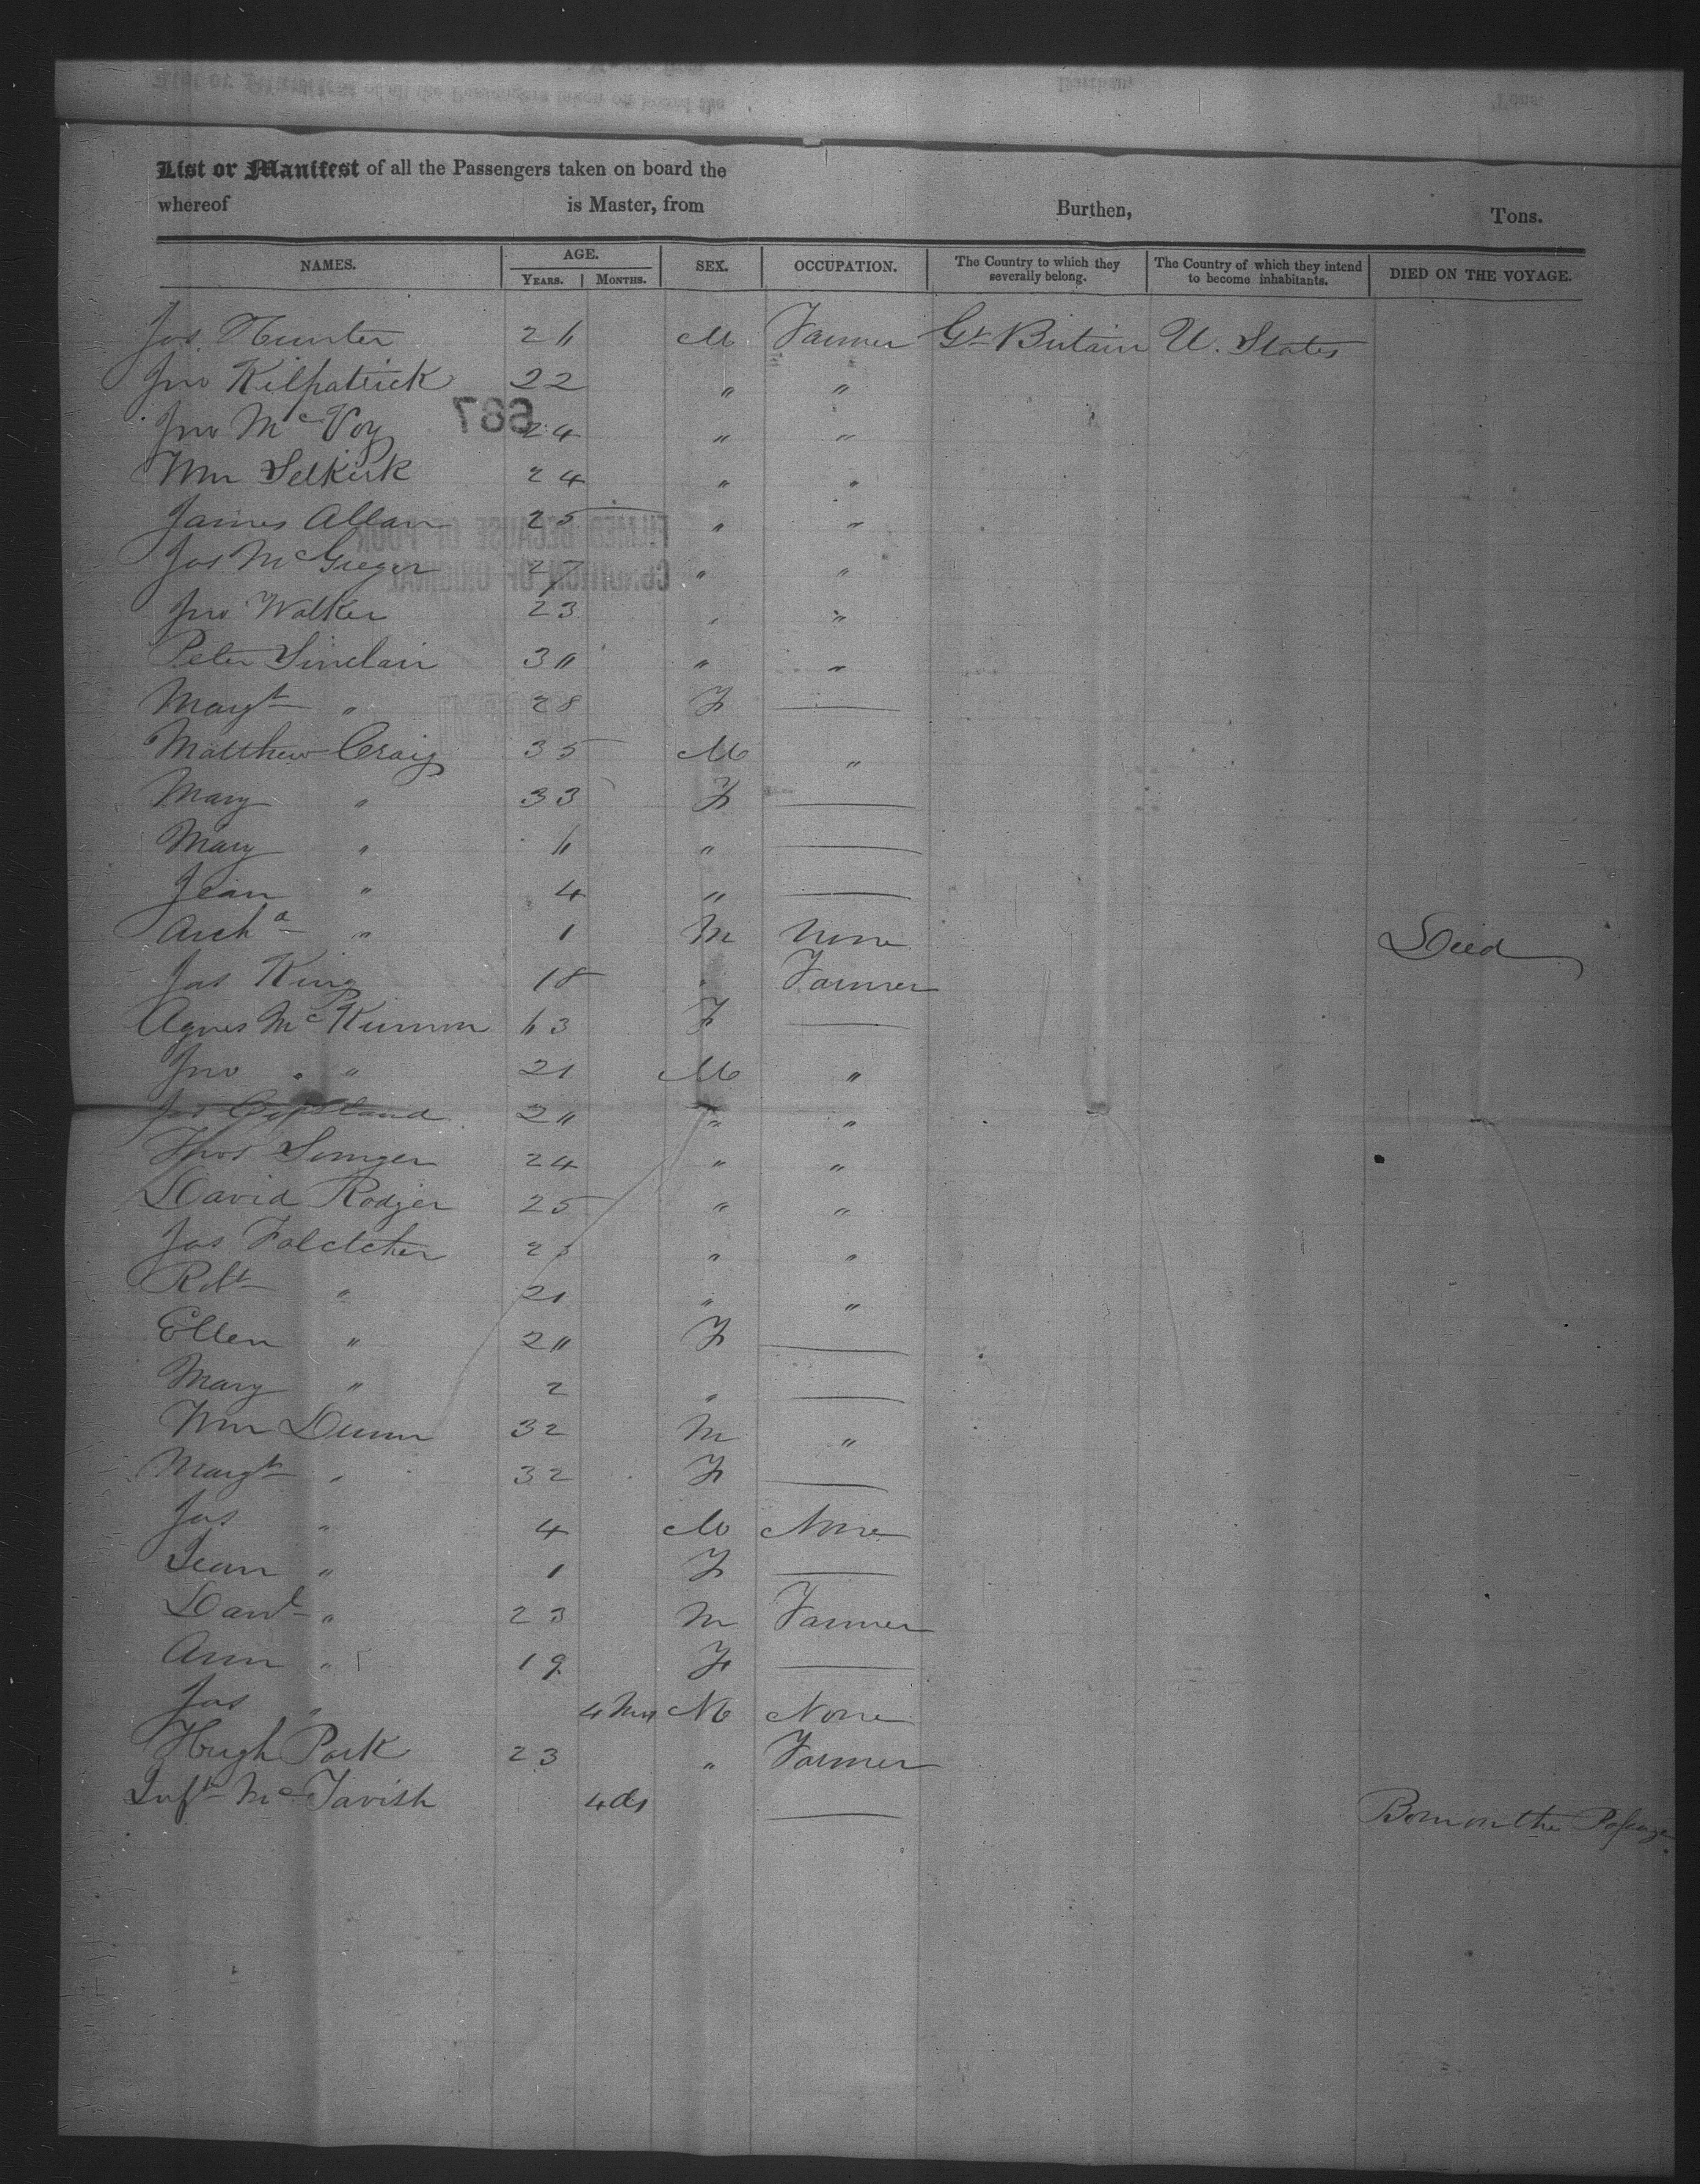 List or Manifest of all the Passengers taken on board the
whereof is Master, from Burthen, Tons.
NAMES. AGE. YEARS. MONTHS. SEX. OCCUPATION. The Country to which they severally belong. The Country of which they intend to become inhabitants. DIED ON THE VOYAGE.
Jas Hunter 26 M Farmer Gt Britain U. States
Jno Kilpatrick 22 " "
Jno McVoy 24 " "
Wm Selkirk 24 " "
James Allan 25 " "
Jas McGregor 27 " "
Jno Walker 23 " "
Peter Sinclair 30 " "
Margt " 28 F —
Matthew Craig 35 M "
Mary " 33 F —
Mary " 6 " —
Jean " 4 " —
Archd " 1 M None Died
Jas King 18 " Farmer
Agnes McKinnon 63 F —
Jno " " 21 M "
Jas Copeland 20 " "
Thos 24 " "
David Rodger 25 " "
Jas " "
Robt " 21 " "
Ellen " 20 F —
Mary " 2 " —
Wm Dunn 32 M "
Margt " 32 F —
Jas " 4 M None
Jean " 1 F —
Danl " 23 M Farmer
Ann " 19 F —
Jas " 4 Mos M None
Hugh Park 23 " Farmer
Inft McTavish 4 ds — Born on the Passage
687
FILMED BECAUSE OF POOR
CONDITION OF ORIGINAL